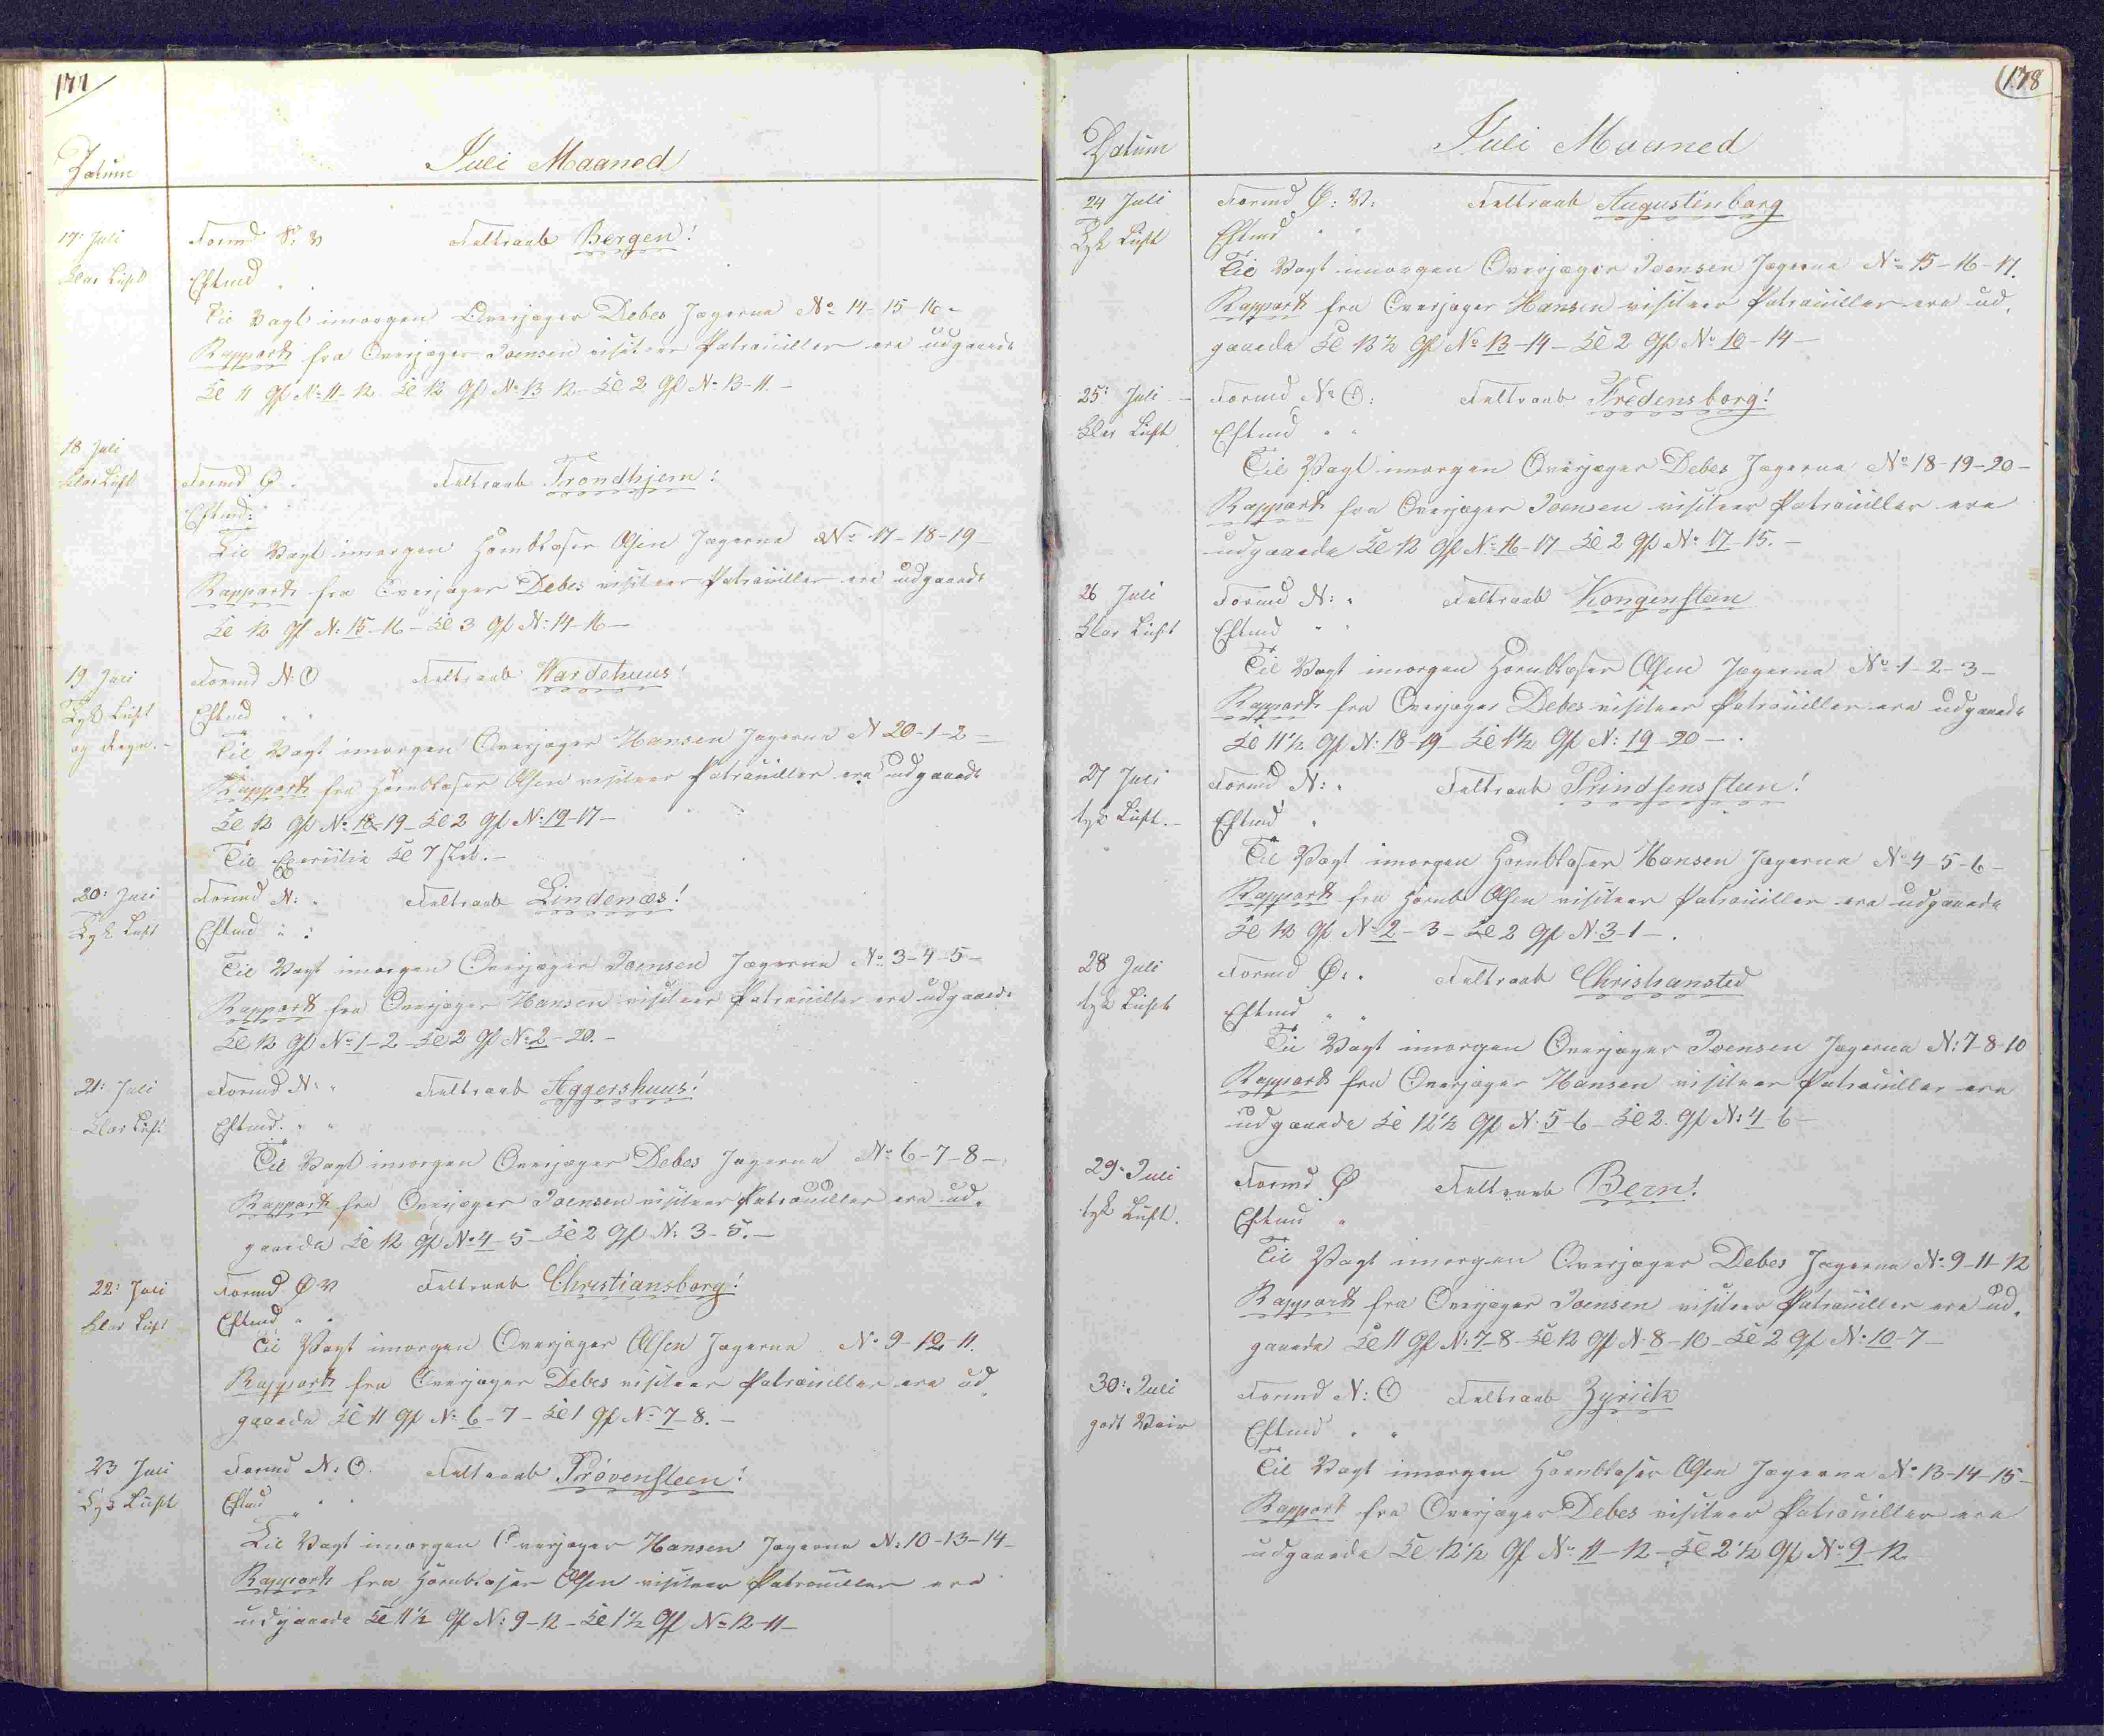 177
Datum
Juli Maaned
17: Juli
Klar Luft
Formd S: V Feltraab Bergen!
Eftmd " "
Til Vagt imorgen Overjæger Debes Jægerne No 14-15-16-
Rapport fra Overjæger Joensen visiteer Patrouiller ere udgaaede
Kl 11 Gf No 11-12 Kl 12 Gf No 13-12- Kl 2 Gf No 13-11.-
18 Juli
Klar Luft
Formd Ø. Feltraab Trondhjem!
Eftmd: "
Til Vagt imorgen Hornblæser Olsen Jægerne No 17-18-19-
Rapport fra Overjæger Debes visiteer Patrouiller ere udgaaede
Kl 12 Gf N: 15-16- Kl 3 Gf N: 14-16-
19 Juli
Tyk Luft
og Regn.-
Formd N: O Feltraab Wardehuus!
Eftmd " "
Til Vagt imorgen Overjæger Hansen Jægerne N 20-1-2-
Rapport fra Hornblæser Olsen visiteer Patrouiller ere udgaaede
Kl 12 Gf No 18-19- Kl 2 Gf N: 19-17-
Til Exercitie Kl 7 Slet.-
20: Juli
Tyk Luft
Formd N: . Feltraab Lindenæs!
Eftmd " "
Til Vagt imorgen Overjæger Joensen Jægerne No 3-4-5-
Rapport fra Overjæger Hansen visiteer Patrouiller ere udgaaede
Kl 12 Gf No 1-2- Kl 2 Gf No 2-20.-
21: Juli
Klar Luft
Formd N: " Feltraab Aggershuus!
Eftmd. " "
Til Vagt imorgen Overjæger Debes Jægerne No 6-7-8-
Rapport fra Overjæger Joensen visiteer Patrouiller ere ud-
gaaede Kl 12 Gf No 4-5- Kl 2 Gf N: 3-5.-
22: Juli
Klar Luft
Formd Ø V Feltraab Christiansborg!
Eftmd " "
Til Vagt imorgen Overjæger Olsen Jægerne No 9-12-11.
Rapport fra Overjæger Debes visiteer Patrouiller ere ud-
gaaede Kl 11 Gf No 6-7- Kl 1 Gf No 7-8.-
23 Juli
Tyk Luft
Formd N: O. Feltraab Prøvensteen!
Eftmd " "
Til Vagt imorgen Overjæger Hansen Jægerne N: 10-13-14-
Rapport fra Hornblæser Olsen visiteer Patrouiller ere
udgaaede Kl 11½ Gf N: 9-12- Kl 1½ Gf No 12-11-
178
Datum
Juli Maaned
24 Juli
Tyk Luft
Formd Ø: V: Feltraab Augustenborg
Eftmd " "
Til Vagt imorgen Overjæger Joensen Jægerne No 15-16-17.
Rapport fra Overjæger Hansen visiteer Patrouiller ere ud-
gaaede Kl 12½ Gf No 13-14- Kl 2 Gf No 10-14-
25: Juli
Klar Luft
Formd No O: Feltraab Fredensborg!
Eftmd " "
Til Vagt imorgen Overjæger Debes Jægerne No 18-19-20-
Rapport fra Overjæger Joensen visiteer Patrouiller ere
udgaaede Kl 12 Gf No 16-17 Kl 2 Gf No 17-15.-
26 Juli
Klar Luft
Formd N: " Feltraab Kongensteen
Eftmd " "
Til Vagt imorgen Hornblæser Olsen Jægerne No 1-2-3-
Rapport fra Overjæger Debes visiteer Patrouiller ere udgaaede
Kl 11½ Gf N: 18-19- Kl 1½ Gf N: 19-20-.
27 Juli
tyk Luft.-
Formd N: . Feltraab Prindsenssteen!
Eftmd "
Til Vagt imorgen Hornblæser Hansen Jægerne No 4-5-6-
Rapport fra Hornb Olsen visiteer Patrouiller ere udgaaede
Kl 12 Gf No 2-3- Kl 2 Gf N. 3-1-.
28 Juli
tyk Luft
Formd Ø: . Feltraab Christiansted
Eftmd " "
Til Vagt imorgen Overjæger Joensen Jægerne N: 7-8-10
Rapport fra Overjæger Hansen visiteer Patrouiller ere
udgaaede Kl 12½ Gf N. 5-6- Kl 2. Gf N: 4-6-
29: Juli
tyk Luft.
Formd Ø Feltraab Bern!
Eftmd "
Til Vagt imorgen Overjæger Debes Jægerne No 9-11-12
Rapport fra Overjæger Joensen visiteer Patrouiller ere ud-
gaaede Kl 11 Gf N: 7-8- Kl 12 Gf N. 8-10- Kl 2 Gf N. 10-7-
30: Juli
godt Veir
Formd N: O Feltraab Zyrich
Eftmd " "
Til Vagt imorgen Hornblæser Olsen Jægerne No 13-14-15-
Rapport fra Overjæger Debes visiteer Patrouiller ere
udgaaede Kl 12½ Gf No 11-12- Kl 2½ Gf No 9-12